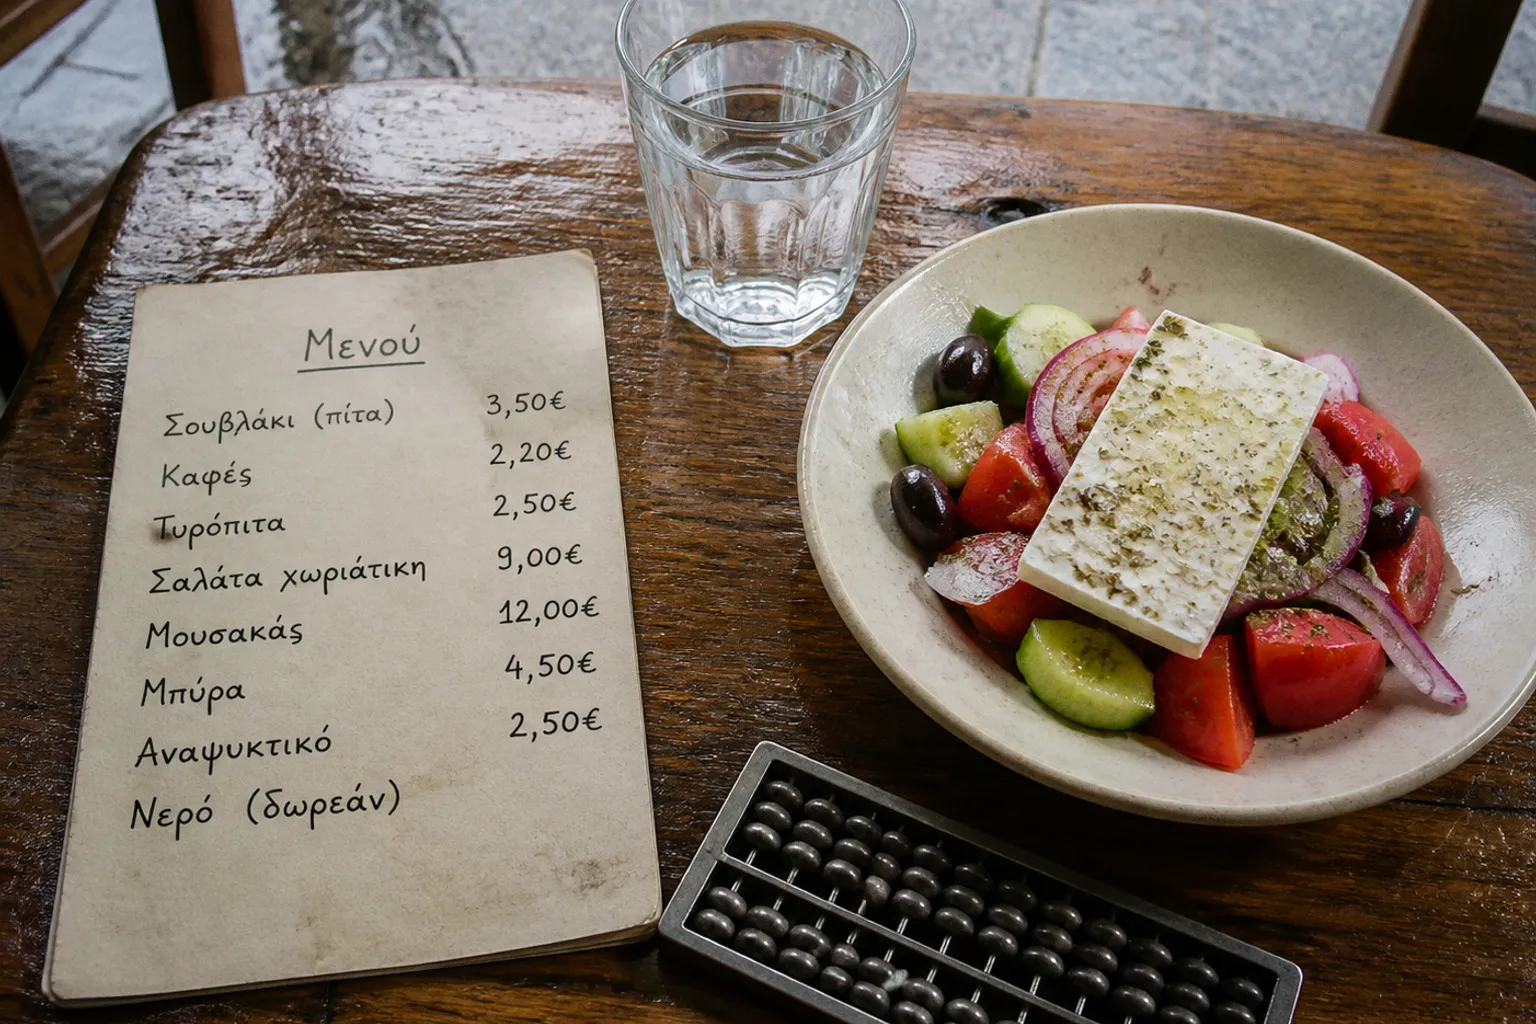 Μενού
Σουβλάκι (πίτα) 3,50€
Καφές 2,20€
Τυρόπιτα 2,50€
Σαλάτα χωριάτικη 9,00€
Μουσακάς 12,00€
Μπύρα 4,50€
Αναψυκτικό 2,50€
Νερό (δωρεάν)